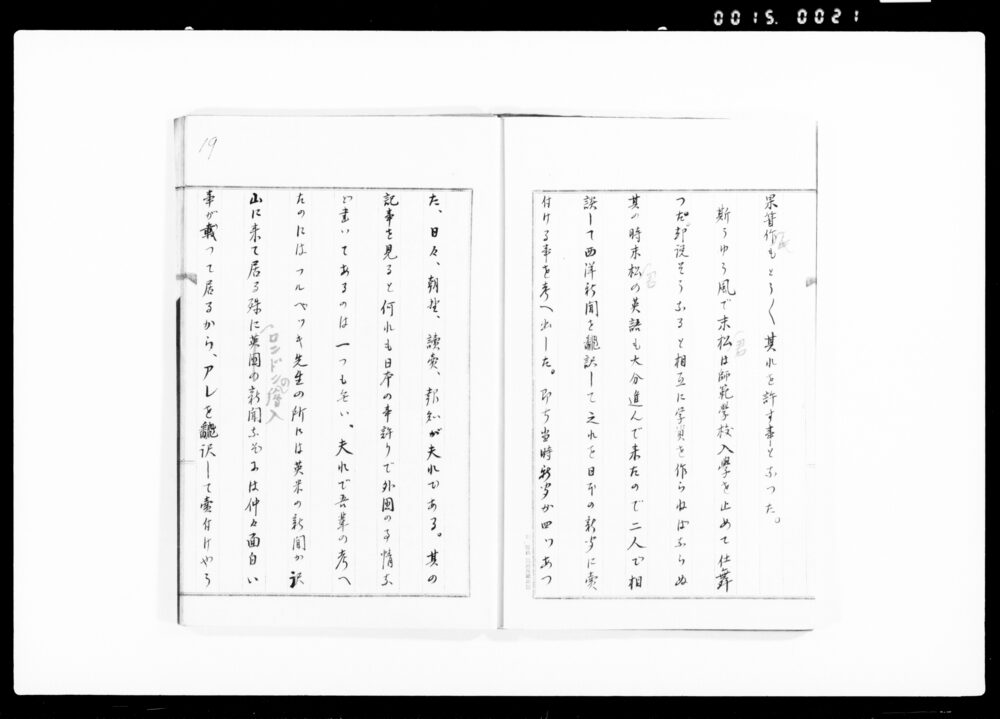 0015. 0021
果筭作もとう〱其れを許す事となつた。
斯うゆう風で末松は師範學校入學を止めて仕舞
つた。却説そうなると相互に学資を作らねばならぬ
其の時末松の英語も大分進んで来たので二人で相
談して西洋新聞を飜訳して之れを日本の新聞に賣
付ける事を考へ出した。即ち当時新聞が四つあつ
19
た、日々、朝野、讀賣、報知が夫れである。其の
記事を見ると何れも日本の事許りで外國の事情な
ど書いてあるのは一つも無い、夫れで吾輩の考へ
たのにはフルベッキ先生の所には英米の新聞が沢
山に来て居る殊に英國の新聞なぞには仲々面白い
ロンドンの
入
事が載つて居るから、アレを飜訳して賣付けやう